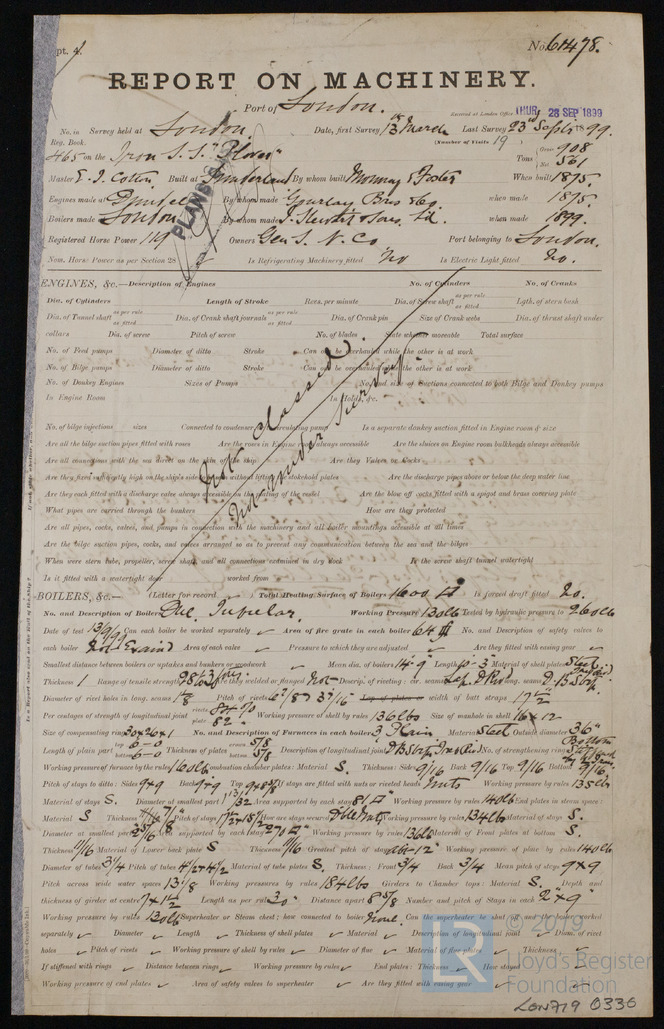 pt. 4. No. 61478.
REPORT ON MACHINERY.
Port of London.
Received at London Office THUR. 28 SEP 1899
No. in Survey held at London Date, first Survey 13th March Last Survey 23rd Sept 1899.
Reg. Book. (Number of Visits 19)
465 on the Iron S.S. "Plover" Tons Gross 908 Net 561
Master E. J. Cotton Built at Sunderland By whom built Mounsey & Foster When built 1875.
Engines made at Dundee By whom made Gourlay Bros & Co. when made 1875.
Boilers made London By whom made J. Stewart & Sons Ld. when made 1899.
Registered Horse Power 119 Owners Gen. S. N. Co Port belonging to London.
Nom. Horse Power as per Section 28 Is Refrigerating Machinery fitted No Is Electric Light fitted No.
PLANS
ENGINES, &c.—Description of Engines No. of Cylinders No. of Cranks
Dia. of Cylinders Length of Stroke Revs. per minute Dia. of Screw shaft as per rule as fitted Lgth. of stern bush
Dia. of Tunnel shaft as per rule as fitted Dia. of Crank shaft journals as per rule as fitted Dia. of Crank pin Size of Crank webs Dia. of thrust shaft under
collars Dia. of screw Pitch of screw No. of blades State whether moveable Total surface
No. of Feed pumps Diameter of ditto Stroke Can one be overhauled while the other is at work
No. of Bilge pumps Diameter of ditto Stroke Can one be overhauled while the other is at work
No. of Donkey Engines Sizes of Pumps No. and size of Suctions connected to both Bilge and Donkey pumps
In Engine Room In Holds, &c.
Not classed.
Not under survey.
No. of bilge injections sizes Connected to condenser, or to circulating pump Is a separate donkey suction fitted in Engine room & size
Are all the bilge suction pipes fitted with roses Are the roses in Engine room always accessible Are the sluices on Engine room bulkheads always accessible
Are all connections with the sea direct on the skin of the ship Are they Valves or Cocks
Are they fixed sufficiently high on the ship's side to be seen without lifting the stokehold plates Are the discharge pipes above or below the deep water line
Are they each fitted with a discharge valve always accessible on the plating of the vessel Are the blow off cocks fitted with a spigot and brass covering plate
What pipes are carried through the bunkers How are they protected
Are all pipes, cocks, valves, and pumps in connection with the machinery and all boiler mountings accessible at all times
Are the bilge suction pipes, cocks, and valves arranged so as to prevent any communication between the sea and the bilges
When were stern tube, propeller, screw shaft, and all connections examined in dry dock Is the screw shaft tunnel watertight
Is it fitted with a watertight door worked from
BOILERS, &c.— (Letter for record ) Total Heating Surface of Boilers 1600 Is forced draft fitted No.
No. and Description of Boilers One Tubular Working Pressure 130 lb Tested by hydraulic pressure to 260 lb
Date of test 13/9/99 Can each boiler be worked separately Area of fire grate in each boiler 64 No. and Description of safety valves to
each boiler Area of each valve Pressure to which they are adjusted Are they fitted with easing gear
Smallest distance between boilers or uptakes and bunkers or woodwork Mean dia. of boilers 14-9 Length 10-3 Material of shell plates Steel
Thickness 1 Range of tensile strength Are they welded or flanged Not Descrip. of riveting: cir. seams Lap. D Riv long. seams
Diameter of rivet holes in long. seams 1 1/8 Pitch of rivets Lap of plates or width of butt straps 17 1/2
Per centages of strength of longitudinal joint rivets plate 82 Working pressure of shell by rules 136 lbs Size of manhole in shell 16 x 12
Size of compensating ring 30x26x1 No. and Description of Furnaces in each boiler 3 Plain Material Steel Outside diameter 36"
Length of plain part top 6-0 bottom 6-0 Thickness of plates crown 5/8 bottom 5/8 Description of longitudinal joint No. of strengthening rings
Working pressure of furnace by the rules 160 lb Combustion chamber plates: Material S. Thickness: Sides 9/16 Back 9/16 Top 9/16 Bottom 9/16
Pitch of stays to ditto: Sides 9x9 Back 9x9 Top If stays are fitted with nuts or riveted heads Nuts Working pressure by rules 135 lb
Material of stays S. Diameter at smallest part Area supported by each stay 81 Working pressure by rules 140 lb End plates in steam space:
Material S Thickness 7/8 Pitch of stays How are stays secured Dble Nuts Working pressure by rules 134 lb Material of stays S.
Diameter at smallest part Area supported by each stay 270 Working pressure by rules 136 lb Material of Front plates at bottom S.
Thickness 11/16 Material of Lower back plate S Thickness 11/16 Greatest pitch of stays Working pressure of plate by rules 140 lb
Diameter of tubes 3 1/4 Pitch of tubes 4 1/2 x 4 1/2 Material of tube plates S. Thickness: Front 3/4 Back 3/4 Mean pitch of stays 9x9
Pitch across wide water spaces 13 1/8 Working pressures by rules 184 lbs Girders to Chamber tops: Material S. Depth and
thickness of girder at centre 9 x 1 1/2 Length as per rule 30" Distance apart 8 5/8 Number and pitch of Stays in each 2 x 9"
Working pressure by rules 130 lb Superheater or Steam chest; how connected to boiler None. Can the superheater be shut off and the boiler worked
separately Diameter Length Thickness of shell plates Material Description of longitudinal joint Diam. of rivet
holes Pitch of rivets Working pressure of shell by rules Diameter of flue Material of flue plates Thickness
If stiffened with rings Distance between rings Working pressure by rules End plates: Thickness How stayed
Working pressure of end plates Area of safety valves to superheater Are they fitted with easing gear
© 2019
Lloyd's Register
Foundation
LON719 0336